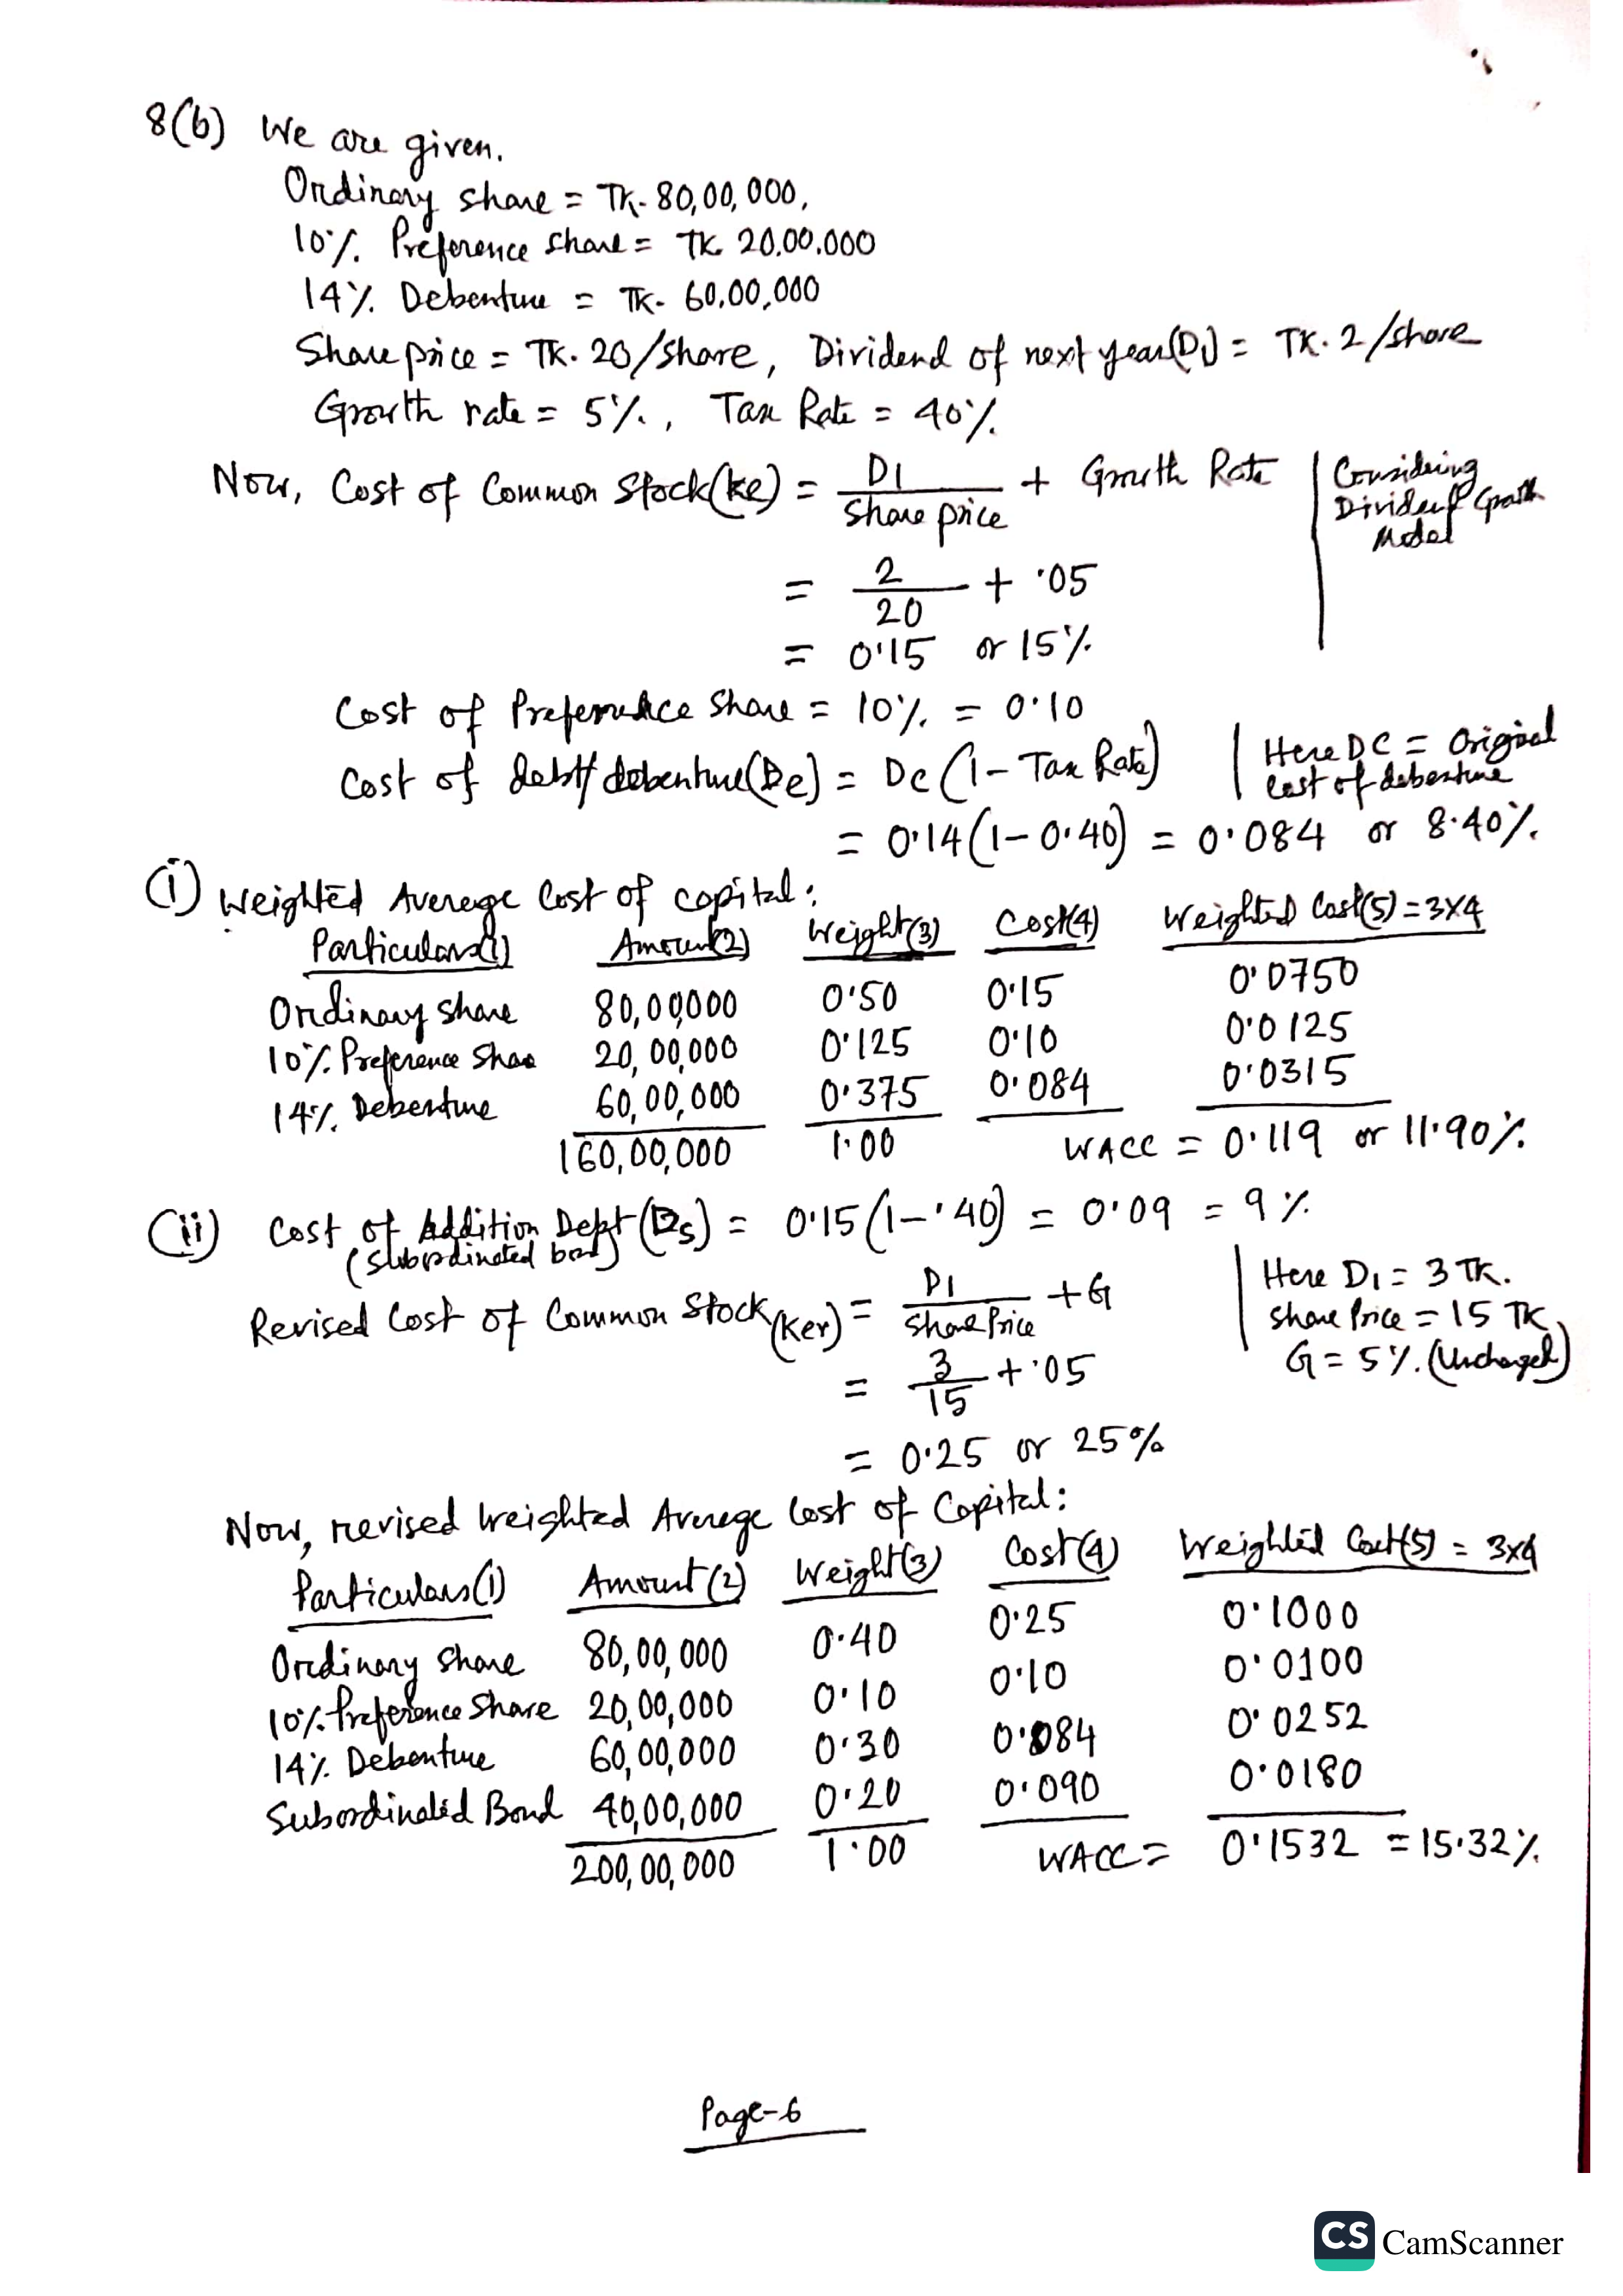 8(b) We are given.
Ordinary share = Tk. 80,00,000,
10% Preference share = Tk. 20,00,000
14% Debenture = Tk. 60,00,000
Share price = Tk. 20/share, Dividend of next year(D1) = Tk. 2/share
Growth rate = 5%, Tax Rate = 40%
Now, Cost of Common Stock(Ke) = D1 / Share price + Growth Rate | Considering Dividend Growth Model
= 2 / 20 + .05
= 0.15 or 15%
Cost of Preference Share = 10% = 0.10
Cost of debt/debenture(De) = Dc (1 - Tax Rate) | Here DC = Original Cost of debenture
= 0.14(1-0.40) = 0.084 or 8.40%
(i) Weighted Average Cost of capital:
Particulars(1) Amount(2) Weight(3) Cost(4) Weighted Cost(5) = 3x4
Ordinary share 80,00,000 0.50 0.15 0.0750
10% Preference Share 20,00,000 0.125 0.10 0.0125
14% Debenture 60,00,000 0.375 0.084 0.0315
160,00,000 1.00 WACC = 0.119 or 11.90%
(ii) Cost of Addition Debt (Ds) = 0.15(1-.40) = 0.09 = 9%
(Subordinated bond)
Revised Cost of Common Stock(Ker) = D1 / Share Price + G | Here D1 = 3 Tk.
Share Price = 15 TK,
G = 5%. (Unchanged)
= 3 / 15 + .05
= 0.25 or 25%
Now, revised Weighted Average Cost of Capital:
Particulars(1) Amount(2) Weight(3) Cost(4) Weighted Cost(5) = 3x4
Ordinary Share 80,00,000 0.40 0.25 0.1000
10% Preference Share 20,00,000 0.10 0.10 0.0100
14% Debenture 60,00,000 0.30 0.084 0.0252
Subordinated Bond 40,00,000 0.20 0.090 0.0180
200,00,000 1.00 WACC = 0.1532 = 15.32%
Page-6
CS CamScanner